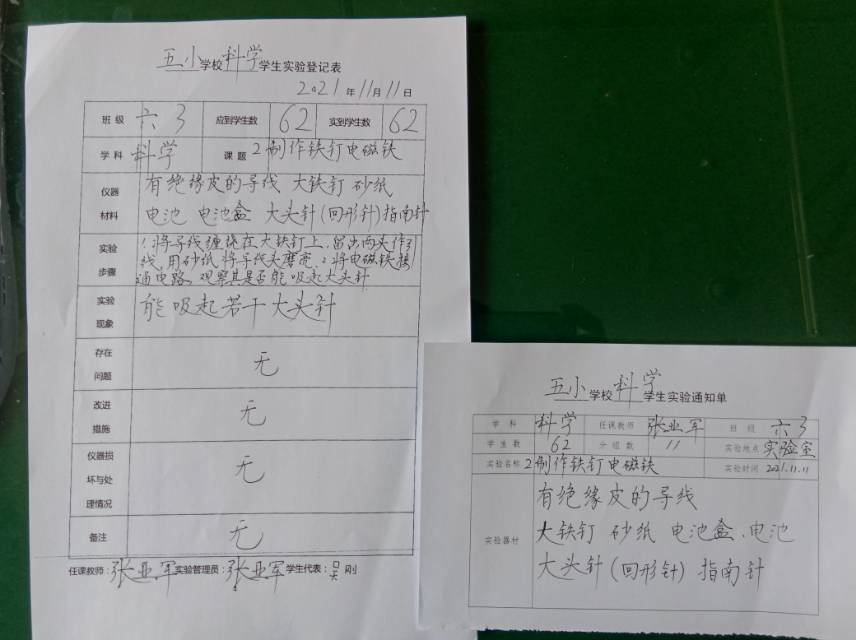 五小学校科学学生实验登记表
2021年11月11日
班级 六3 应到学生数 62 实到学生数 62
学科 科学 课题 2制作铁钉电磁铁
仪器材料 有绝缘皮的导线 大铁钉 砂纸
电池 电池盒 大头针(回形针)指南针
实验步骤 1.将导线缠绕在大铁钉上,留出两头作引
线,用砂纸将导线头磨亮,2将电磁铁接
通电路,观察其是否能吸起大头针
实验现象 能吸起若干大头针
存在问题 无
改进措施 无
仪器损坏与处理情况 无
备注 无
任课教师:张亚军 实验管理员:张亚军 学生代表:吴刚
五小学校科学学生实验通知单
学科 科学 任课教师 张亚军 班级 六3
学生数 62 分组数 11 实验地点 实验室
实验名称 2制作铁钉电磁铁 实验时间 2021.11.11
实验器材 有绝缘皮的导线
大铁钉 砂纸 电池盒、电池
大头针(回形针) 指南针